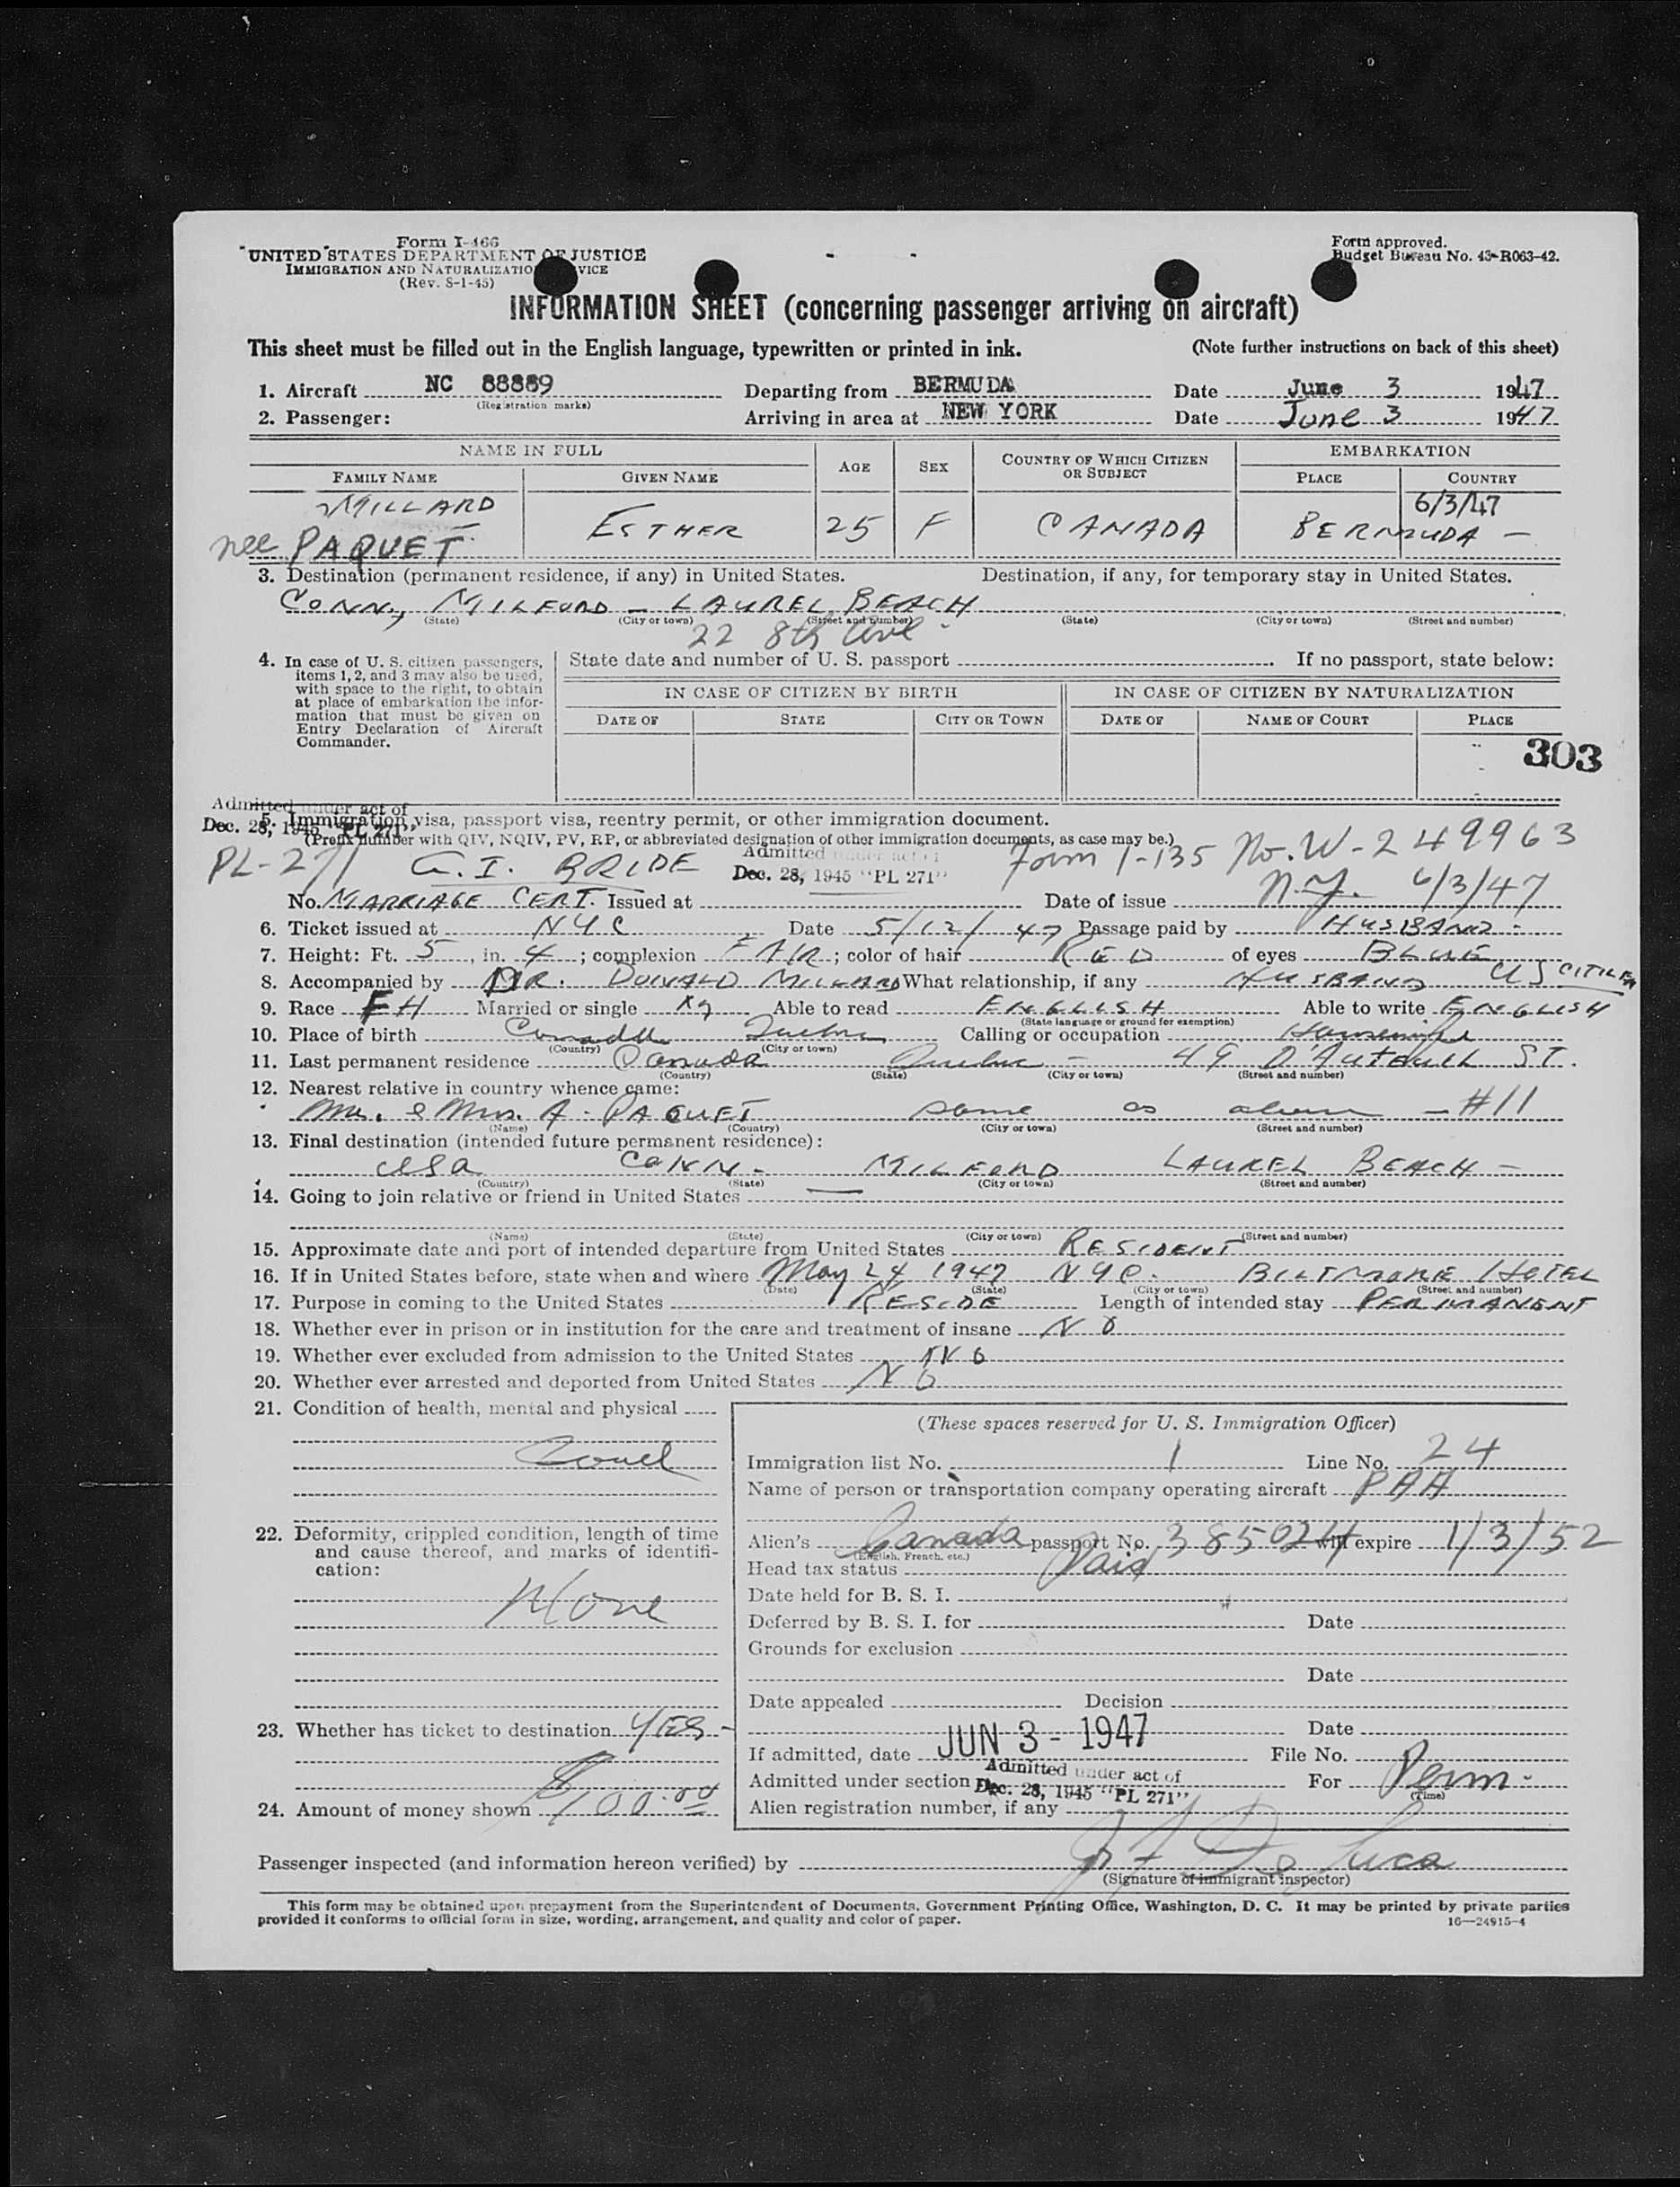 Form I-466
UNITED STATES DEPARTMENT OF JUSTICE
IMMIGRATION AND NATURALIZATIO VICE
(Rev. 8-1-45)
Form approved.
Budget Bureau No. 43-R063-42.
INFORMATION SHEET (concerning passenger arriving on aircraft)
This sheet must be filled out in the English language, typewritten or printed in ink. (Note further instructions on back of this sheet)
1. Aircraft NC 88889 Departing from BERMUDA Date June 3 1947
(Registration marks)
2. Passenger: Arriving in area at NEW YORK Date June 3 1947
NAME IN FULL AGE SEX COUNTRY OF WHICH CITIZEN OR SUBJECT EMBARKATION
FAMILY NAME GIVEN NAME PLACE COUNTRY
MILLARD 6/3/47
nee PAQUET ESTHER 25 F CANADA BERMUDA -
3. Destination (permanent residence, if any) in United States. Destination, if any, for temporary stay in United States.
CONN, MILFORD - LAUREL BEACH
(State) (City or town) (Street and number) (State) (City or town) (Street and number)
22 8th Ave
4. In case of U. S. citizen passengers, items 1, 2, and 3 may also be used, with space to the right, to obtain at place of embarkation the information that must be given on Entry Declaration of Aircraft Commander.
State date and number of U. S. passport . If no passport, state below:
IN CASE OF CITIZEN BY BIRTH IN CASE OF CITIZEN BY NATURALIZATION
DATE OF STATE CITY OR TOWN DATE OF NAME OF COURT PLACE
303
Admitted under act of
Dec. 28, 1945 "PL 271"
5. Immigration visa, passport visa, reentry permit, or other immigration document.
(Prefix number with QIV, NQIV, PV, RP, or abbreviated designation of other immigration documents, as case may be.)
PL-271 G. I. BRIDE Admitted under act of Form I-135 No. W-249963
Dec. 28, 1945 "PL 271"
No. MARRIAGE CERT. Issued at Date of issue N.Y. 6/3/47
6. Ticket issued at NYC Date 5/12/47 Passage paid by HUSBAND -
7. Height: Ft. 5, in. 4; complexion FAIR; color of hair RED of eyes BLUE
8. Accompanied by MR. DONALD MILLARD What relationship, if any HUSBAND US CITIZEN
9. Race FH Married or single M Able to read ENGLISH Able to write ENGLISH
(State language or ground for exemption)
10. Place of birth Canada Quebec Calling or occupation Housewife
(Country) (City or town)
11. Last permanent residence Canada Quebec - 49 D'Auteuil ST.
(Country) (State) (City or town) (Street and number)
12. Nearest relative in country whence came:
Mr. & Mrs. A. PAQUET same as above - #11
(Name) (Country) (City or town) (Street and number)
13. Final destination (intended future permanent residence):
USA CONN- MILFORD LAUREL BEACH -
(Country) (State) (City or town) (Street and number)
14. Going to join relative or friend in United States —
(Name) (State) (City or town) (Street and number)
15. Approximate date and port of intended departure from United States RESIDENT
16. If in United States before, state when and where May 24 1947 NYC. BILTMORE HOTEL
(Date) (State) (City or town) (Street and number)
17. Purpose in coming to the United States RESIDE Length of intended stay PERMANENT
18. Whether ever in prison or in institution for the care and treatment of insane NO
19. Whether ever excluded from admission to the United States NO
20. Whether ever arrested and deported from United States NO
21. Condition of health, mental and physical
Good
22. Deformity, crippled condition, length of time and cause thereof, and marks of identification:
None
23. Whether has ticket to destination YES -
24. Amount of money shown $100.00
(These spaces reserved for U. S. Immigration Officer)
Immigration list No. 1 Line No. 24
Name of person or transportation company operating aircraft PAA
Alien's Canada passport No. 385024 will expire 1/3/52
(English, French, etc.)
Head tax status Paid
Date held for B. S. I.
Deferred by B. S. I. for Date
Grounds for exclusion
Date
Date appealed Decision
Date
If admitted, date JUN 3 - 1947 File No.
Admitted under section Admitted under act of Dec. 28, 1945 "PL 271" For Perm.
(Time)
Alien registration number, if any
Passenger inspected (and information hereon verified) by J F De Luca
(Signature of immigrant inspector)
This form may be obtained upon prepayment from the Superintendent of Documents, Government Printing Office, Washington, D. C. It may be printed by private parties
provided it conforms to official form in size, wording, arrangement, and quality and color of paper. 16—24915-4